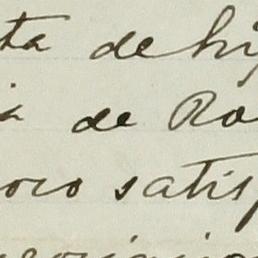 ta de hi
a de Ro
oro satis